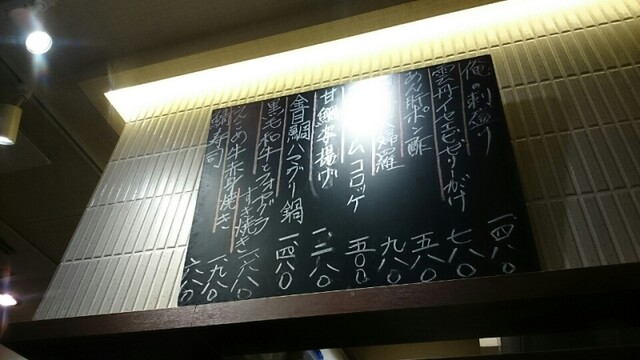 俺の刺盛り 一、四八〇
雲丹イセエビゼリーがけ 七八〇
あん肝ポン酢 五八〇
婦羅 九八〇
ムコロッケ 五〇〇
甘鯛唐揚げ 一、二八〇
金目鯛ハマグリ鍋 一、四八〇
黒毛和牛とフォアグラすき焼き 一、六八〇
め牛赤身焼き 一、九八〇
寿司 六八〇